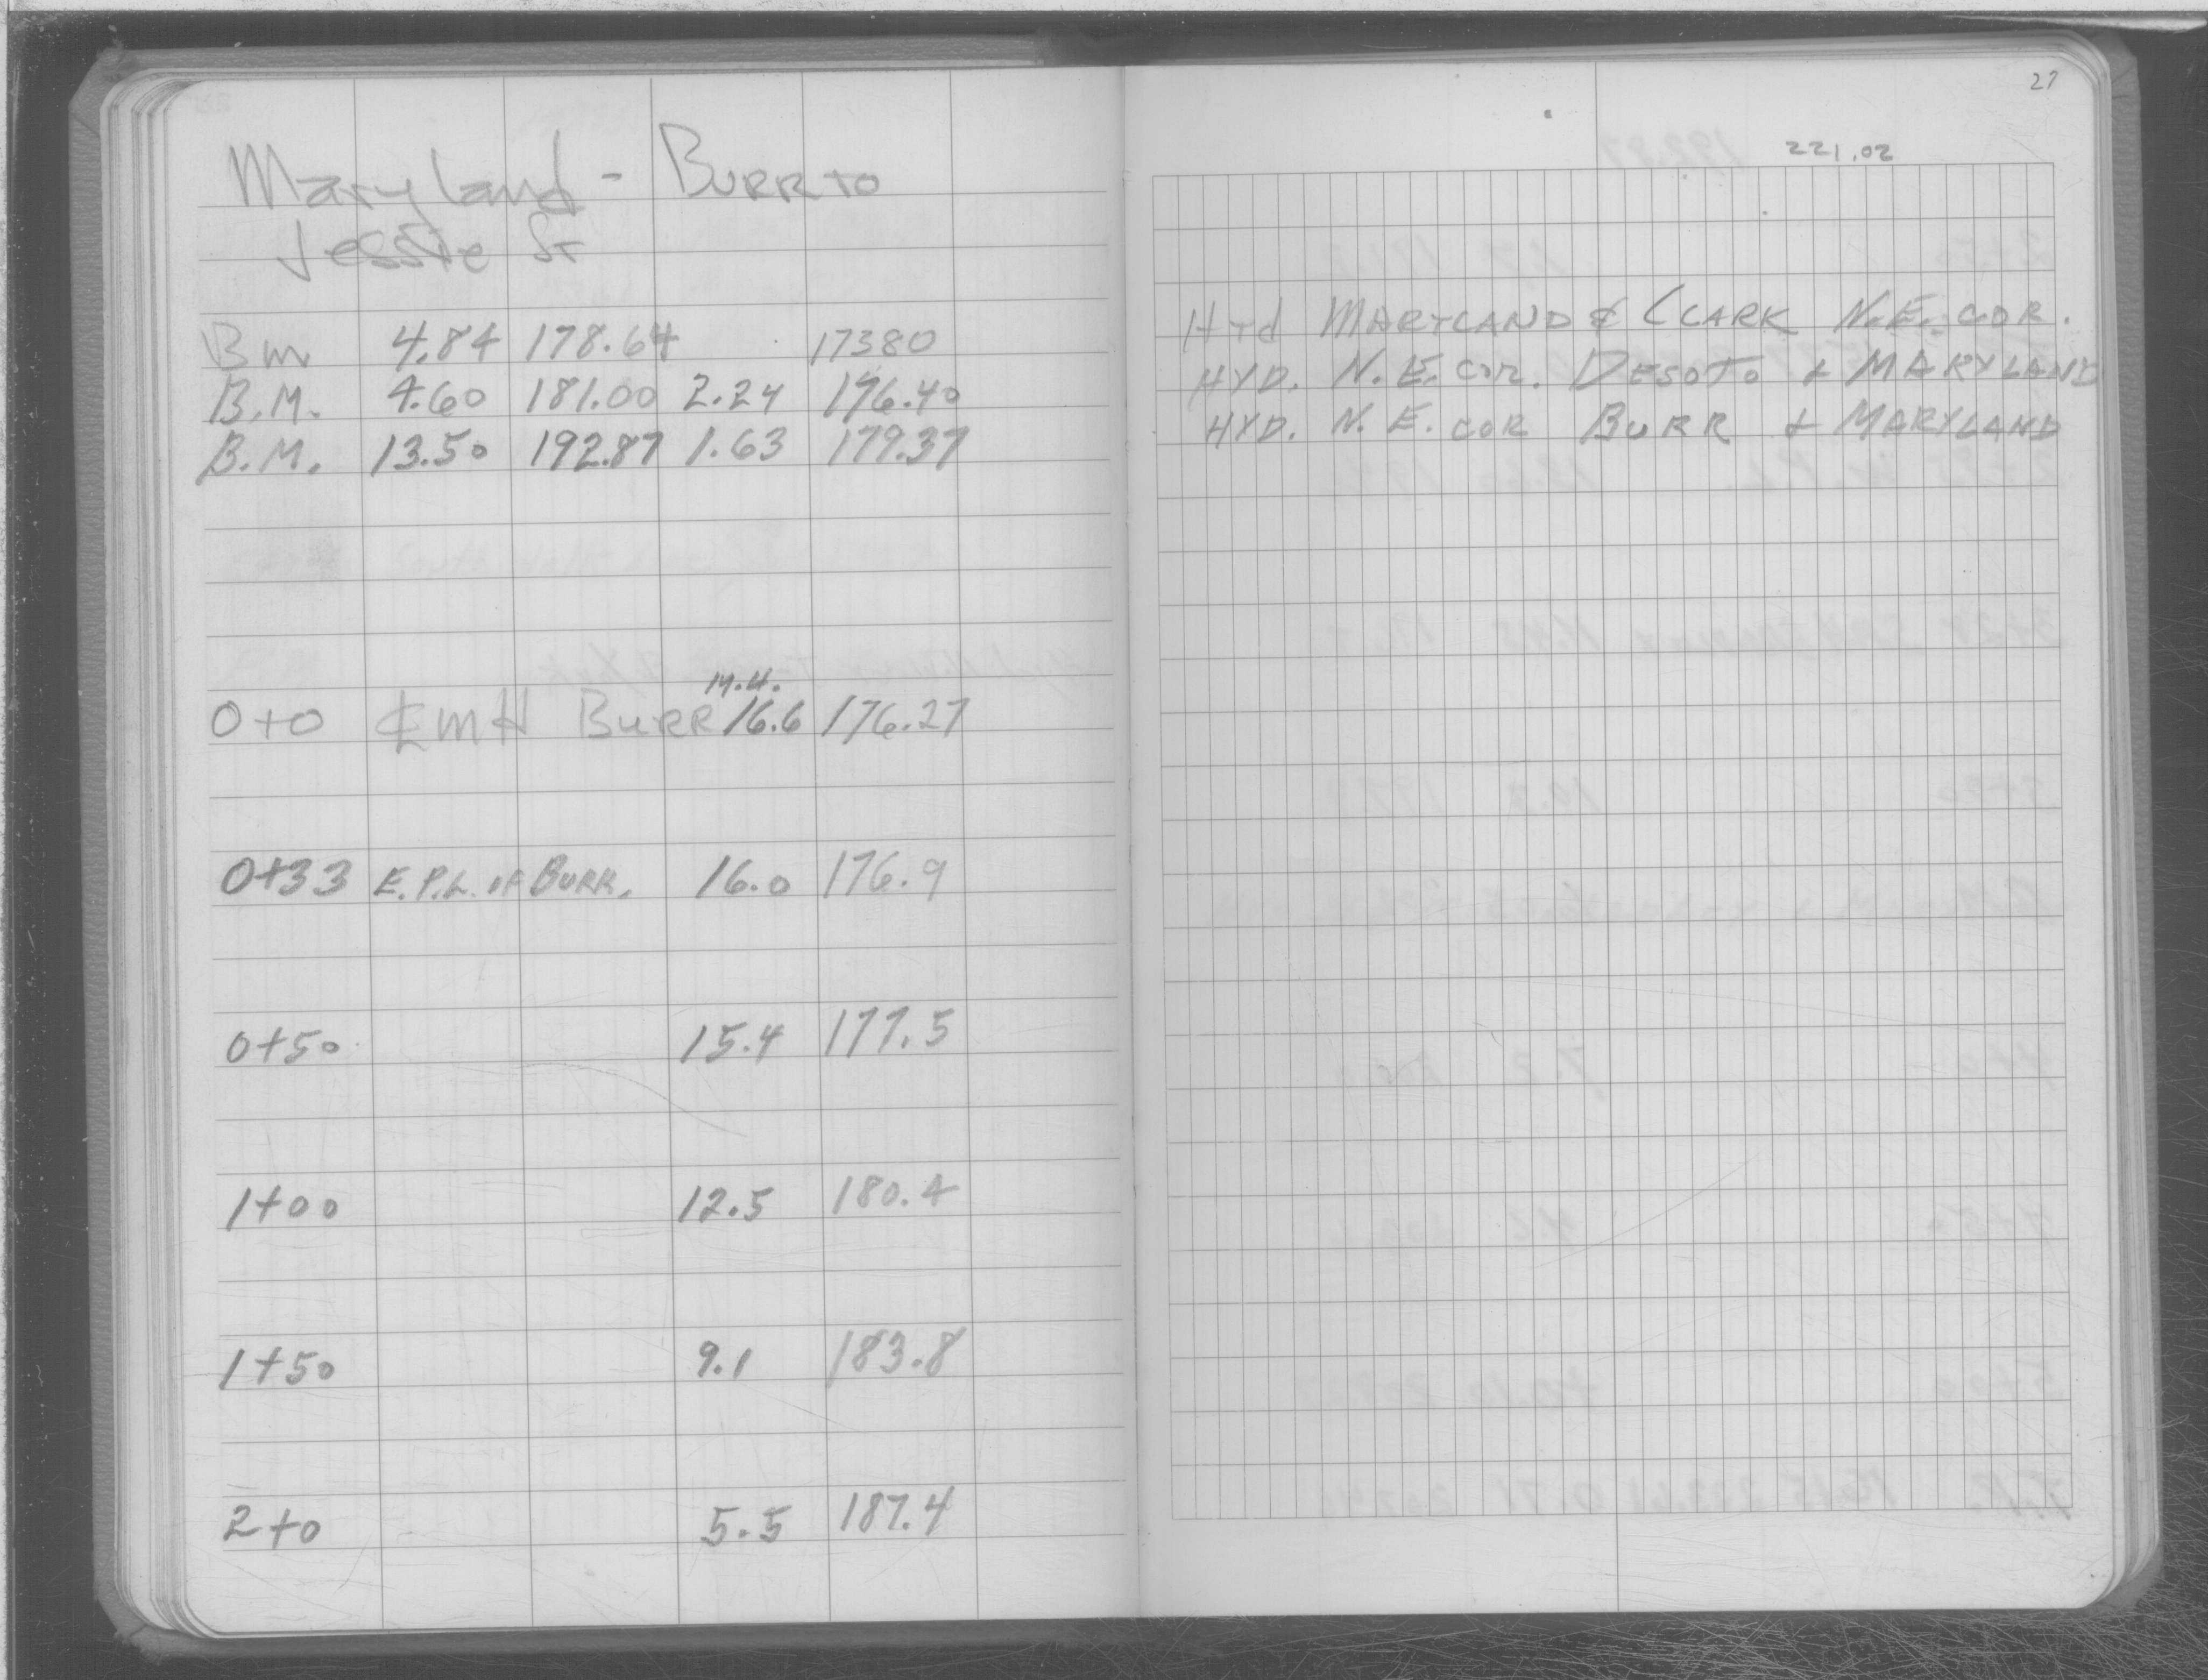 Maryland - BURR TO
Jessie St
Bm 4.84 178.64 17380
B.M. 4.60 181.00 2.24 176.40
B.M. 13.50 192.87 1.63 179.37
M.H.
0+0 ℄ MH BURR 16.6 176.27
0+33 E.P.L. OF BURR. 16.0 176.9
0+50 15.4 177.5
1+00 12.5 180.4
1+50 9.1 183.8
2+0 5.5 187.4
27
221.02
Hyd MARYLAND & CLARK N.E. COR.
HYD. N.E. COR. DESOTO & MARYLAND
HYD. N.E. COR BURR & MARYLAND